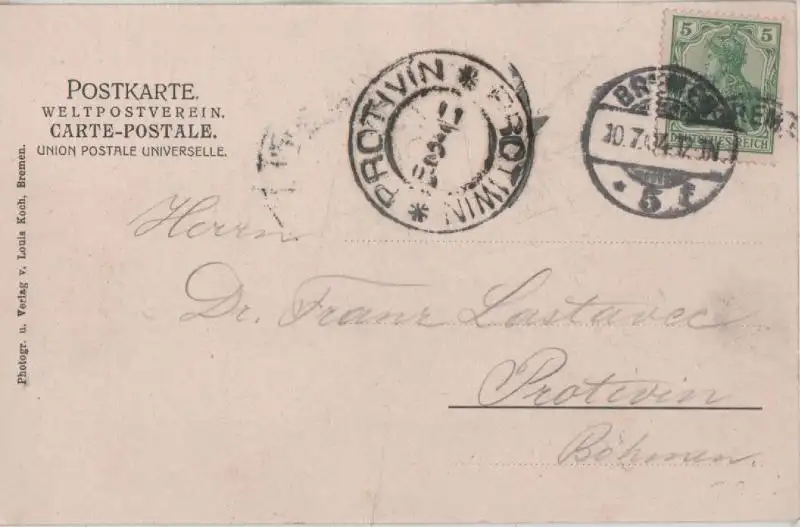 POSTKARTE.
WELTPOSTVEREIN.
CARTE-POSTALE.
UNION POSTALE UNIVERSELLE.
Photogr. u. Verlag v. Louis Koch, Bremen.
PROTIVIN * PROTIWIN *
BREMEN
10.7.04.12-1N
* 5 f
5 5
DEUTSCHES REICH
Herrn
Dr. Franz Lastavec
Protivin
Böhmen.